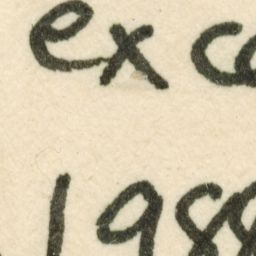 exce
198